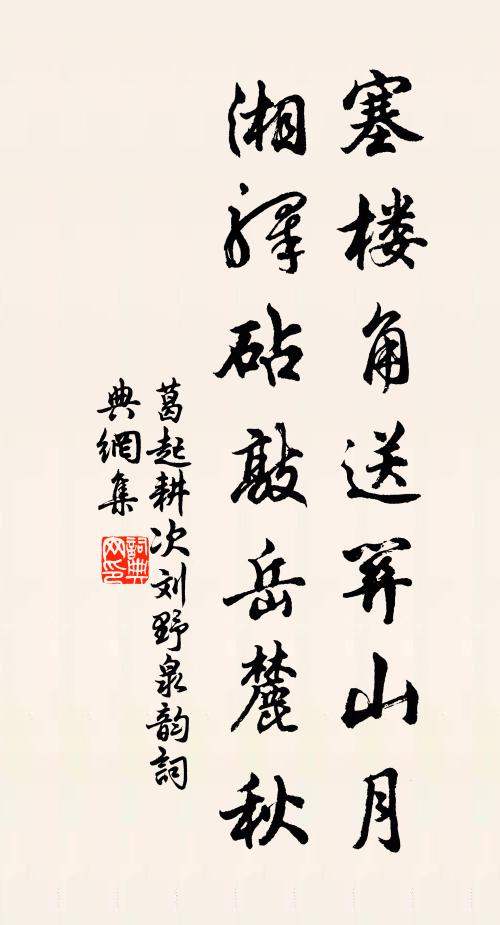 塞楼角送关山月
湘驿砧敲岳麓秋
葛起耕次刘野泉韵詞
典網集
詞典
网印